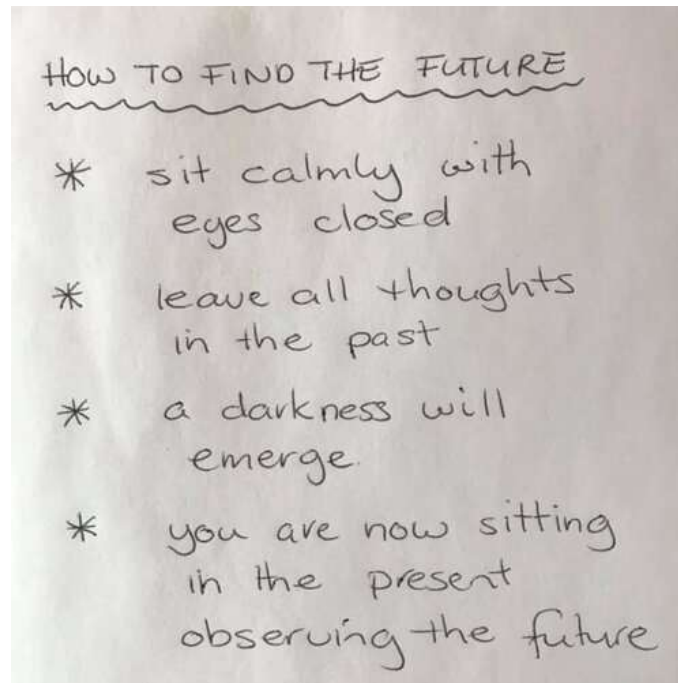 HOW TO FIND THE FUTURE
* sit calmly with
eyes closed
* leave all thoughts
in the past
* a darkness will
emerge.
* you are now sitting
in the present
observing the future